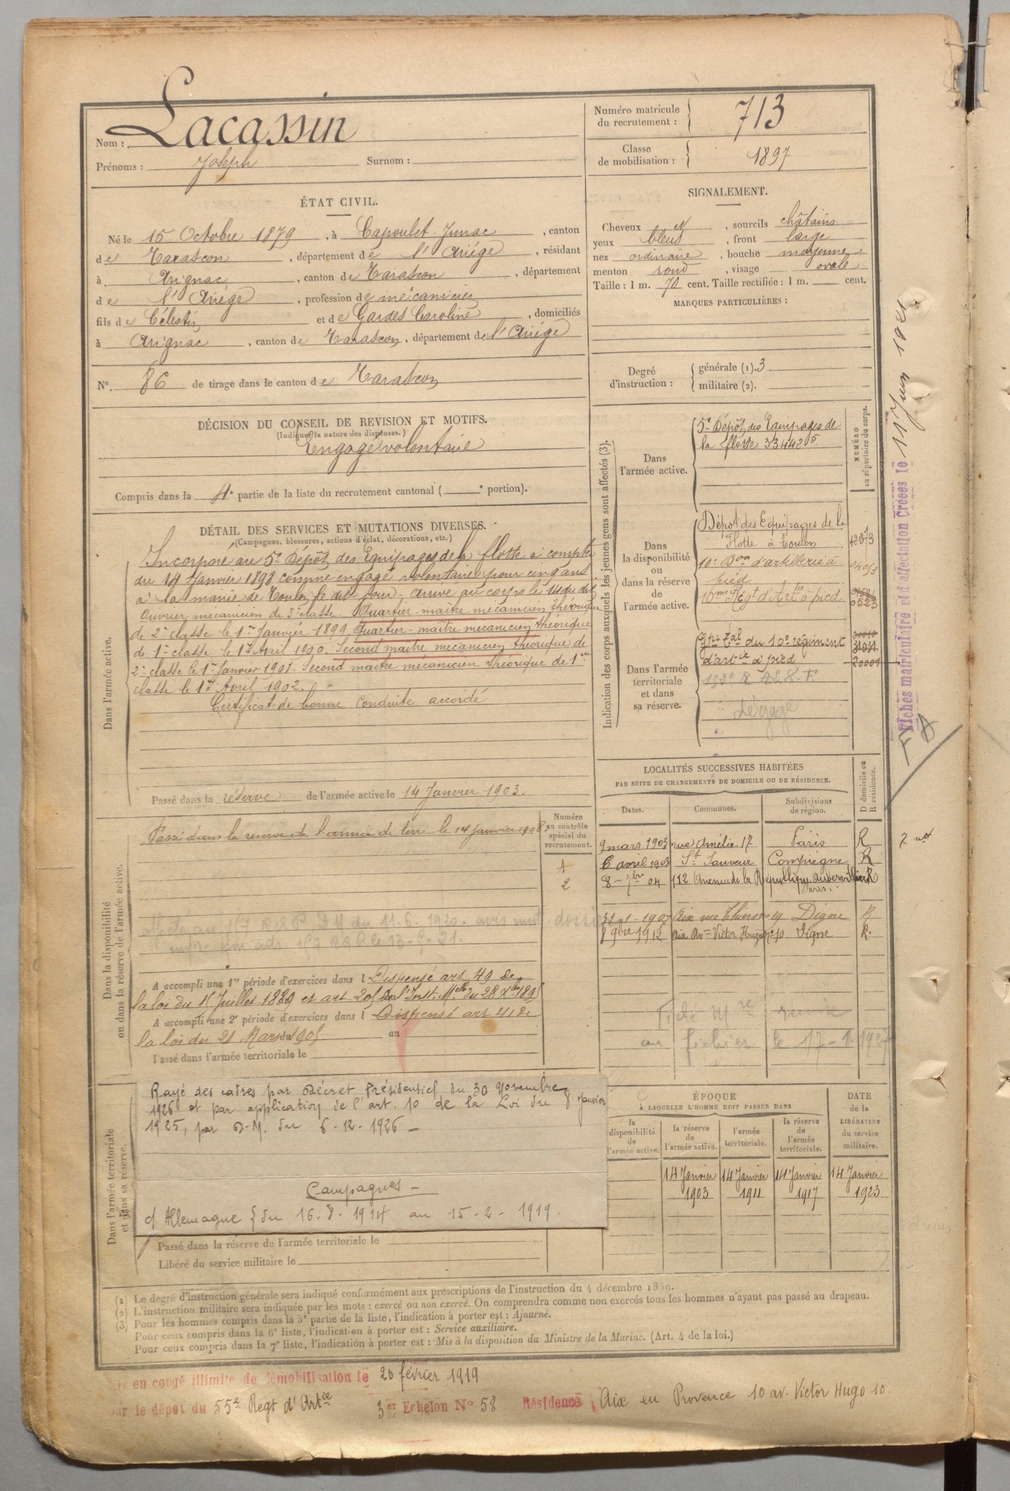 Nom : Lacassin
Prénoms : Joseph Surnom :
ÉTAT CIVIL.
Né le 15 Octobre 1879, à Capoulet-Junac, canton
de Tarascon, département de l'Ariège, résidant
à Arignac, canton de Tarascon, département
de l'Ariège, profession de mécanicien
fils de Célestin et de Gardes Caroline, domiciliés
à Arignac, canton de Tarascon, département de l'Ariège
N° 86 de tirage dans le canton de Tarascon
DÉCISION DU CONSEIL DE REVISION ET MOTIFS.
(Indiquer la nature des dispenses.)
Engagé volontaire
Compris dans la 4e partie de la liste du recrutement cantonal ( e portion).
DÉTAIL DES SERVICES ET MUTATIONS DIVERSES.
(Campagnes, blessures, actions d'éclat, décorations, etc.)
Dans l'armée active.
Incorporé au 5e Dépôt des Equipages de la flotte à compter
du 14 Janvier 1898 comme engagé volontaire pour cinq ans
à la mairie de Toulon le dit jour. Arrivé au corps le
Ouvrier mécanicien de 3e classe Quartier-maitre mécanicien théorique
de 2e classe le 1er Janvier 1899 Quartier-maître mécanicien théorique
de 1e classe le 1er Avril 1900. Second maître mécanicien théorique de
2e classe le 1er Janvier 1901. Second maître mécanicien théorique de 1ère
classe le 1er Avril 1902.
Certificat de bonne conduite accordé
Passé dans la réserve de l'armée active le 14 Janvier 1903.
Dans la disponibilité ou dans la réserve de l'armée active.
Passé dans la réserve de l'armée de terre le 14 janvier 1908
Numéro au contrôle spécial du recrutement.
1
2
A accompli une 1re période d'exercices dans l Dispensé art. 49 de
la loi du 15 Juillet 1889 et art 20
A accompli une 2e période d'exercices dans l Dispensé art 41 de
la loi du 21 Mars 1905 au
Passé dans l'armée territoriale le
Dans l'armée territoriale et dans sa réserve.
Rayé des cadres par Décret Présidentiel du 30 Novembre
1926 et par application de l'art. 10 de la Loi du 8 Janvier
1925, par D.M. du 6-12-1926 —
Campagnes —
c/ Allemagne { du 16.8.1914 au 15-2-1919
Passé dans la réserve de l'armée territoriale le
Libéré du service militaire le
Numéro matricule du recrutement : 713
Classe de mobilisation : 1897
SIGNALEMENT.
Cheveux N, sourcils châtains
yeux bleus, front large
nez ordinaire, bouche moyenne
menton rond, visage ovale
Taille : 1 m. 70 cent. Taille rectifiée : 1 m. cent.
MARQUES PARTICULIÈRES :
Degré d'instruction : générale (1). 3
militaire (2).
Indication des corps auxquels les jeunes gens sont affectés (3).
NUMÉRO au répertoire du corps.
Dans l'armée active.
5e Dépôt des Equipages de
la flotte 33442
Dans la disponibilité ou dans la réserve de l'armée active.
Dépôt des Equipages de la
Flotte à Toulon
10e Bon d'artillerie à
pied
10me Régt d'Artie à pied
Dans l'armée territoriale et dans sa réserve.
du 10e régiment
d'artie à pied
Dégagé
Fiches matriculaire et d'affectation Créées le 11 Juin 1921
LOCALITÉS SUCCESSIVES HABITÉES
PAR SUITE DE CHANGEMENTS DE DOMICILE OU DE RÉSIDENCE.
Dates. Communes. Subdivisions de région. D domicile ou R résidence.
9 mars 1903 rue Amélie 17 Paris R
6 avril 1903 St Sauveur Compiègne R
8-7bre 04 112 Avenue de la République Aubervilliers Paris. R
1907 Aix rue Thiers 19 Digne
1912 Aix Aue Victor Hugo 10 Digne R.
ÉPOQUE
À LAQUELLE L'HOMME DOIT PASSER DANS
la disponibilité de l'armée active.
la réserve de l'armée active.
l'armée territoriale.
la réserve de l'armée territoriale.
DATE de la LIBÉRATION du service militaire.
14 Janvier 1903
14 Janvier 1911
14 Janvier 1917
14 Janvier 1923
(1) Le degré d'instruction générale sera indiqué conformément aux prescriptions de l'instruction du 4 décembre 1889.
(2) L'instruction militaire sera indiquée par les mots : exercé ou non exercé. On comprendra comme non exercés tous les hommes n'ayant pas passé au drapeau.
(3) Pour les hommes compris dans la 5e partie de la liste, l'indication à porter est : Ajourné.
Pour ceux compris dans la 6e liste, l'indication à porter est : Service auxiliaire.
Pour ceux compris dans la 7e liste, l'indication à porter est : Mis à la disposition du Ministre de la Marine. (Art. 4 de la loi.)
Mis en congé illimité de démobilisation le 20 février 1919
par le dépôt du 55e Régt d'Artie 3e Echelon No 58 Résidence Aix en Provence 10 av. Victor Hugo 10.